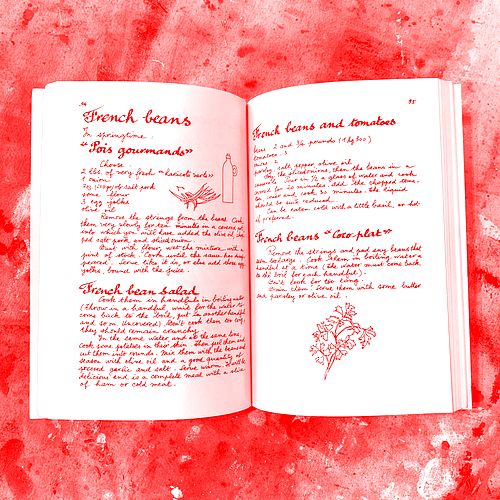 54
French beans
In springtime.
"Pois gourmands"
Choose
2 lbs of very fresh "haricots verts"
1 onion
of salt pork
some flour
3 egg yolks
olive oil
Remove the strings from the beans. Cook
them very slowly for ten minutes in a covered
into which you will have added the olive oil, the
salt pork, and sliced onion.
Dust with flour, wet the mixture with a
pint of stock. Cook until the sauce has
Serve like it is, or else add three egg
yolks, bound with the juice.
French bean salad
Cook them in handfuls in boiling water
(Throw in a handful, wait for the water to
come back to the boil, put in another handful
and so on. Uncovered). Don't cook them too long,
they should remain crunchy.
In the same water and at the same time,
Cook some potatoes in their skin. Then peel them and
cut them into rounds. Mix them with the beans and
season with olive oil and a good quantity of
pressed garlic and salt. Serve warm.
delicious and is a complete meal with a slice
of ham or cold meat.
55
French beans and tomatoes
Beans 2 and 3/4 pounds (1 kg 300)
tomatoes 3
onion 2
parsley, salt, pepper, olive oil.
Fry the sliced onions, then the beans in a
Pour in 1/2 a glass of water and cook
covered for 20 minutes. Add the chopped
cover and cook 30 minutes. The liquid
should be quite reduced.
Can be eaten cold with a little basil, or hot
if preferred.
French beans "Coro-plat"
Remove the strings and any beans that
are too large. Cook them in boiling water a
handful at a time (the water must come back
to the boil for each handful).
Don't cook for too long.
Drain them. Serve them with some butter
and parsley or olive oil.